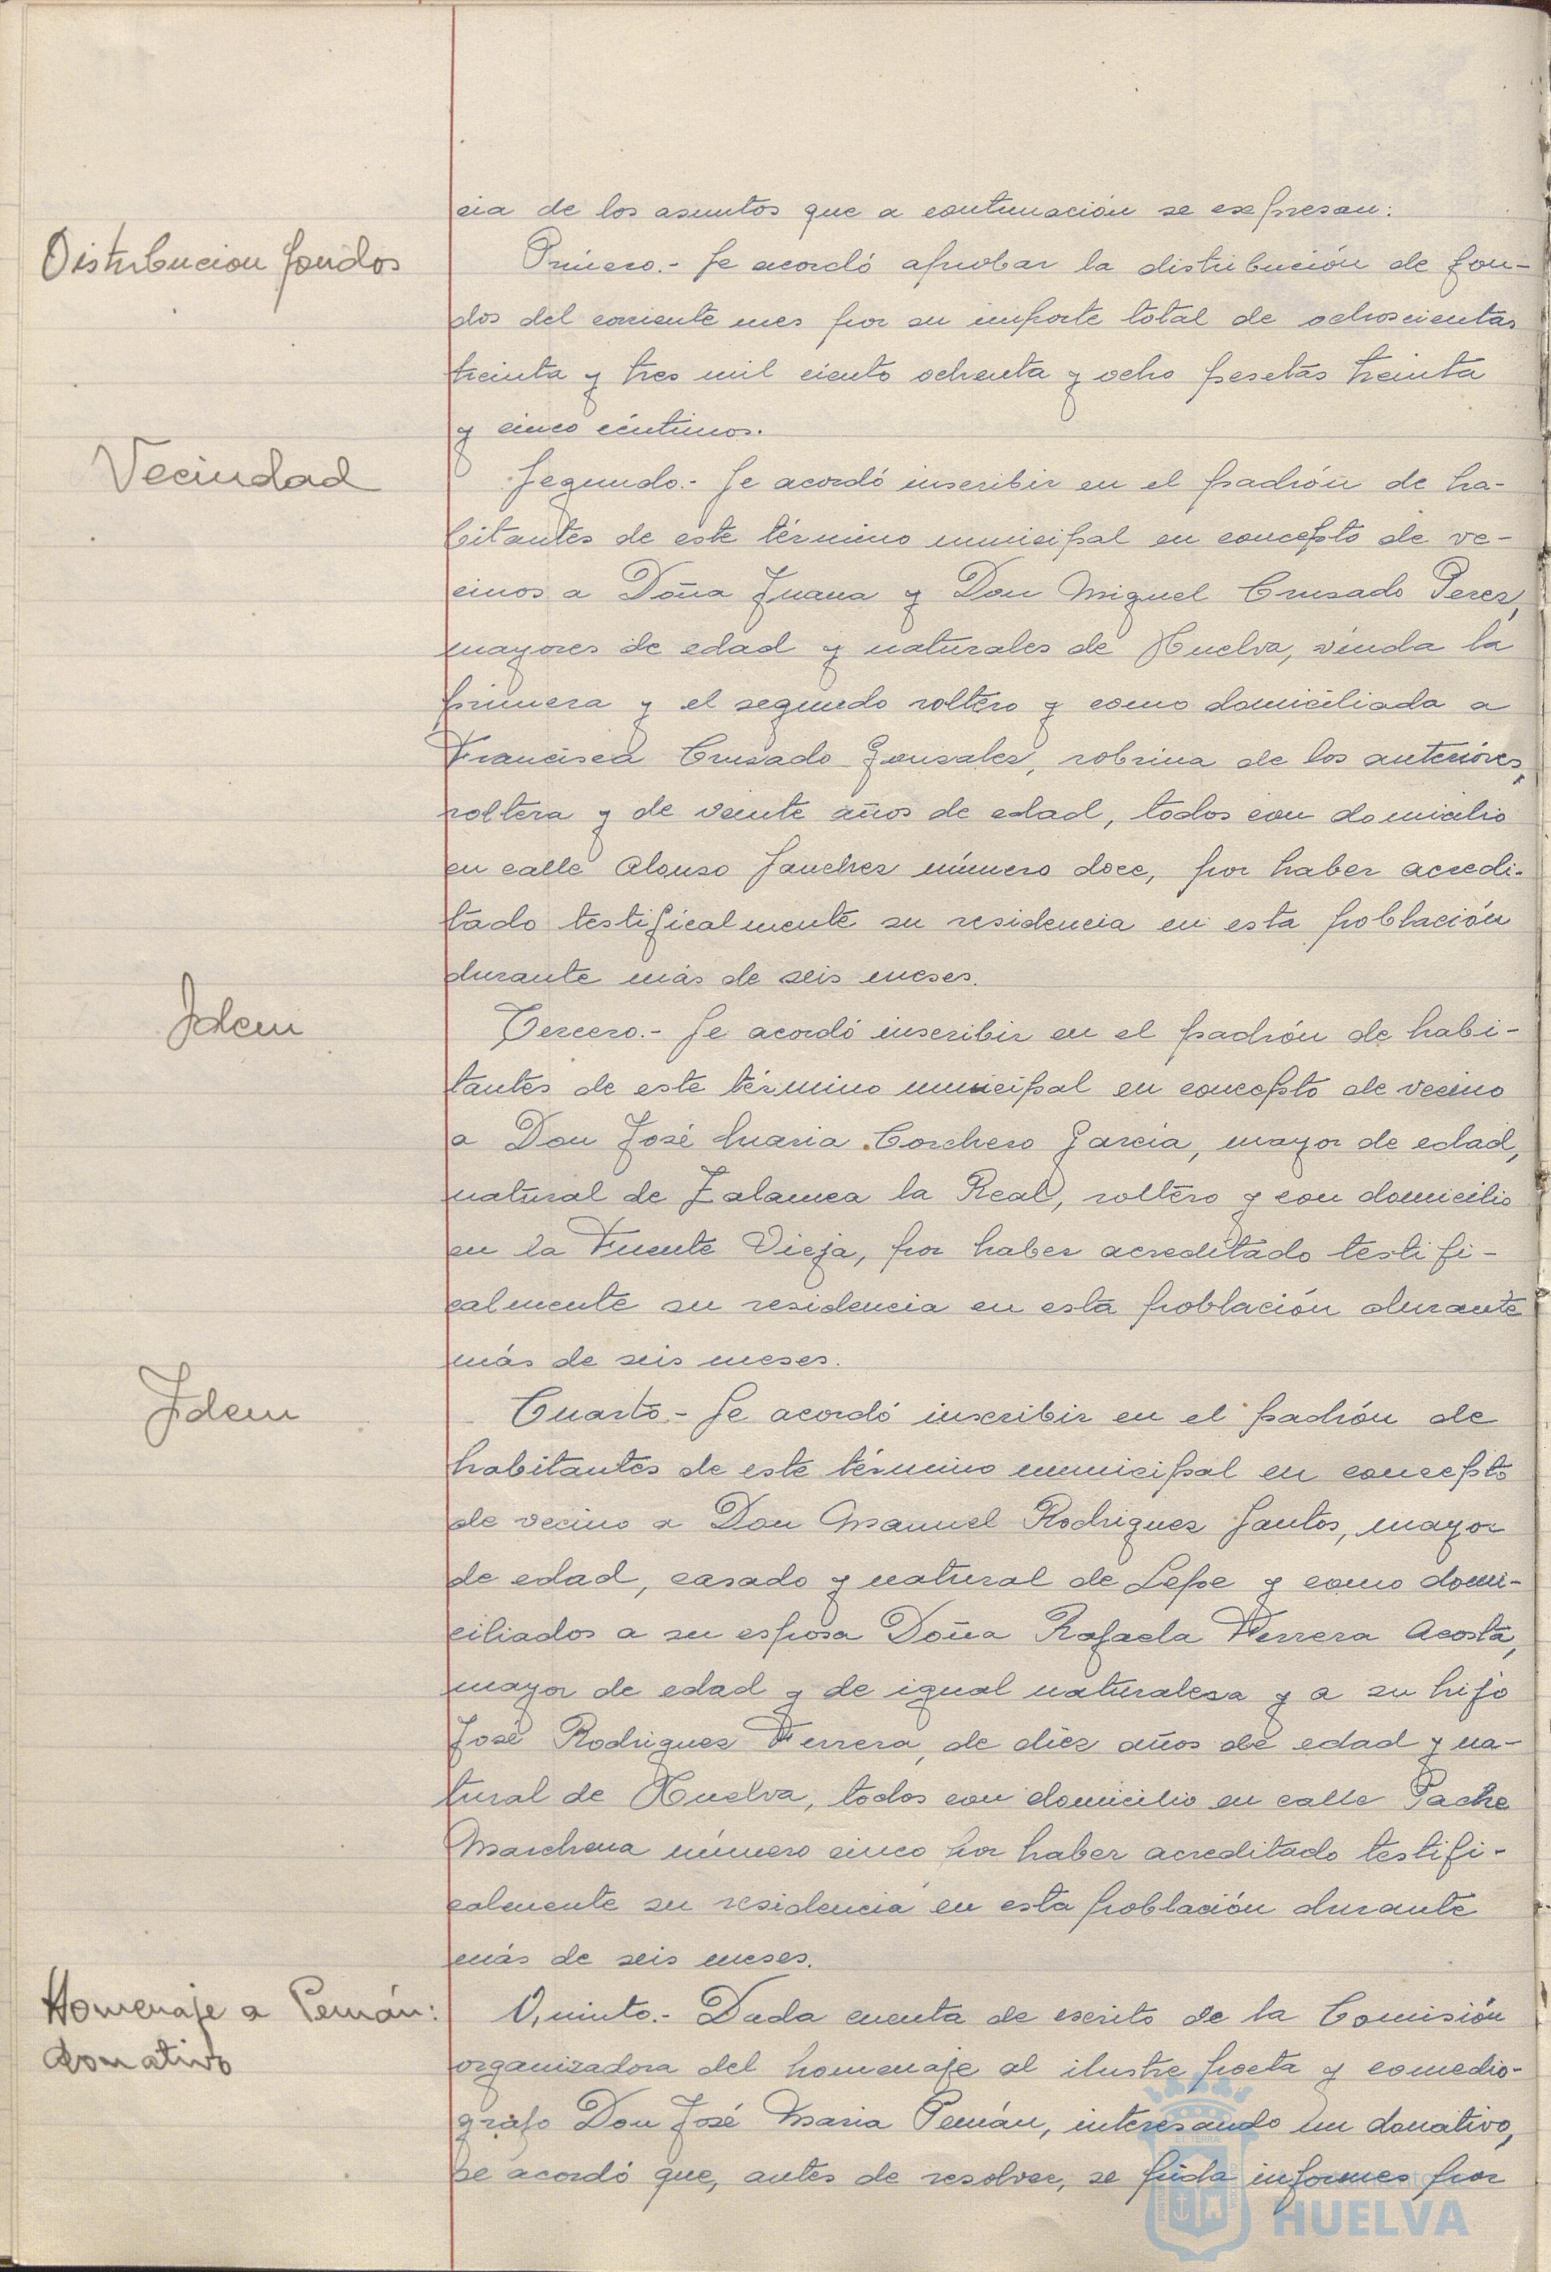 cia de los asuntos que a continuación se expresan:
Distribucion fondos
Primero.- Se acordó aprobar la distribución de fon-
dos del corriente mes por su importe total de ochoscientas
treinta y tres mil ciento ochenta y ocho pesetas treinta
y cinco céntimos.
Vecindad
Segundo.- Se acordó inscribir en el padrón de ha-
bitantes de este término municipal en concepto de ve-
cinos a Doña Juana y Don Miguel Crusado Perez,
mayores de edad y naturales de Huelva, viuda la
primera y el segundo soltero y como domiciliada a
Francisca Crusado Gonsalez, sobrina de los anteriores,
soltera y de veinte años de edad, todos con domicilio
en calle Alonso Sanchez número doce, por haber acredi-
tado testificalmente su residencia en esta población
durante más de seis meses.
Idem
Tercero.- Se acordó inscribir en el padrón de habi-
tantes de este término municipal en concepto de vecino
a Don José Maria Corchero Garcia, mayor de edad,
natural de Zalamea la Real, soltero y con domicilio
en la Fuente Vieja, por haber acreditado testifi-
calmente su residencia en esta población durante
más de seis meses.
Idem
Cuarto.- Se acordó inscribir en el padrón de
habitantes de este término municipal en concepto
de vecino a Don Manuel Rodriguez Santos, mayor
de edad, casado y natural de Lepe y como domi-
ciliados a su esposa Doña Rafaela Ferrera Acosta,
mayor de edad y de igual naturalesa y a su hijo
José Rodriguez Ferrera, de diez años de edad y na-
tural de Huelva, todos con domicilio en calle Padre
Marchena número cinco por haber acreditado testifi-
calmente su residencia en esta población durante
más de seis meses.
Homenaje a Pemán:
donativo
Quinto.- Dada cuenta de escrito de la Comisión
organizadora del homenaje al ilustre poeta y comedio-
grafo Don José Maria Pemán, interesando un donativo,
se acordó que, antes de resolver, se pida informes por
HUELVA